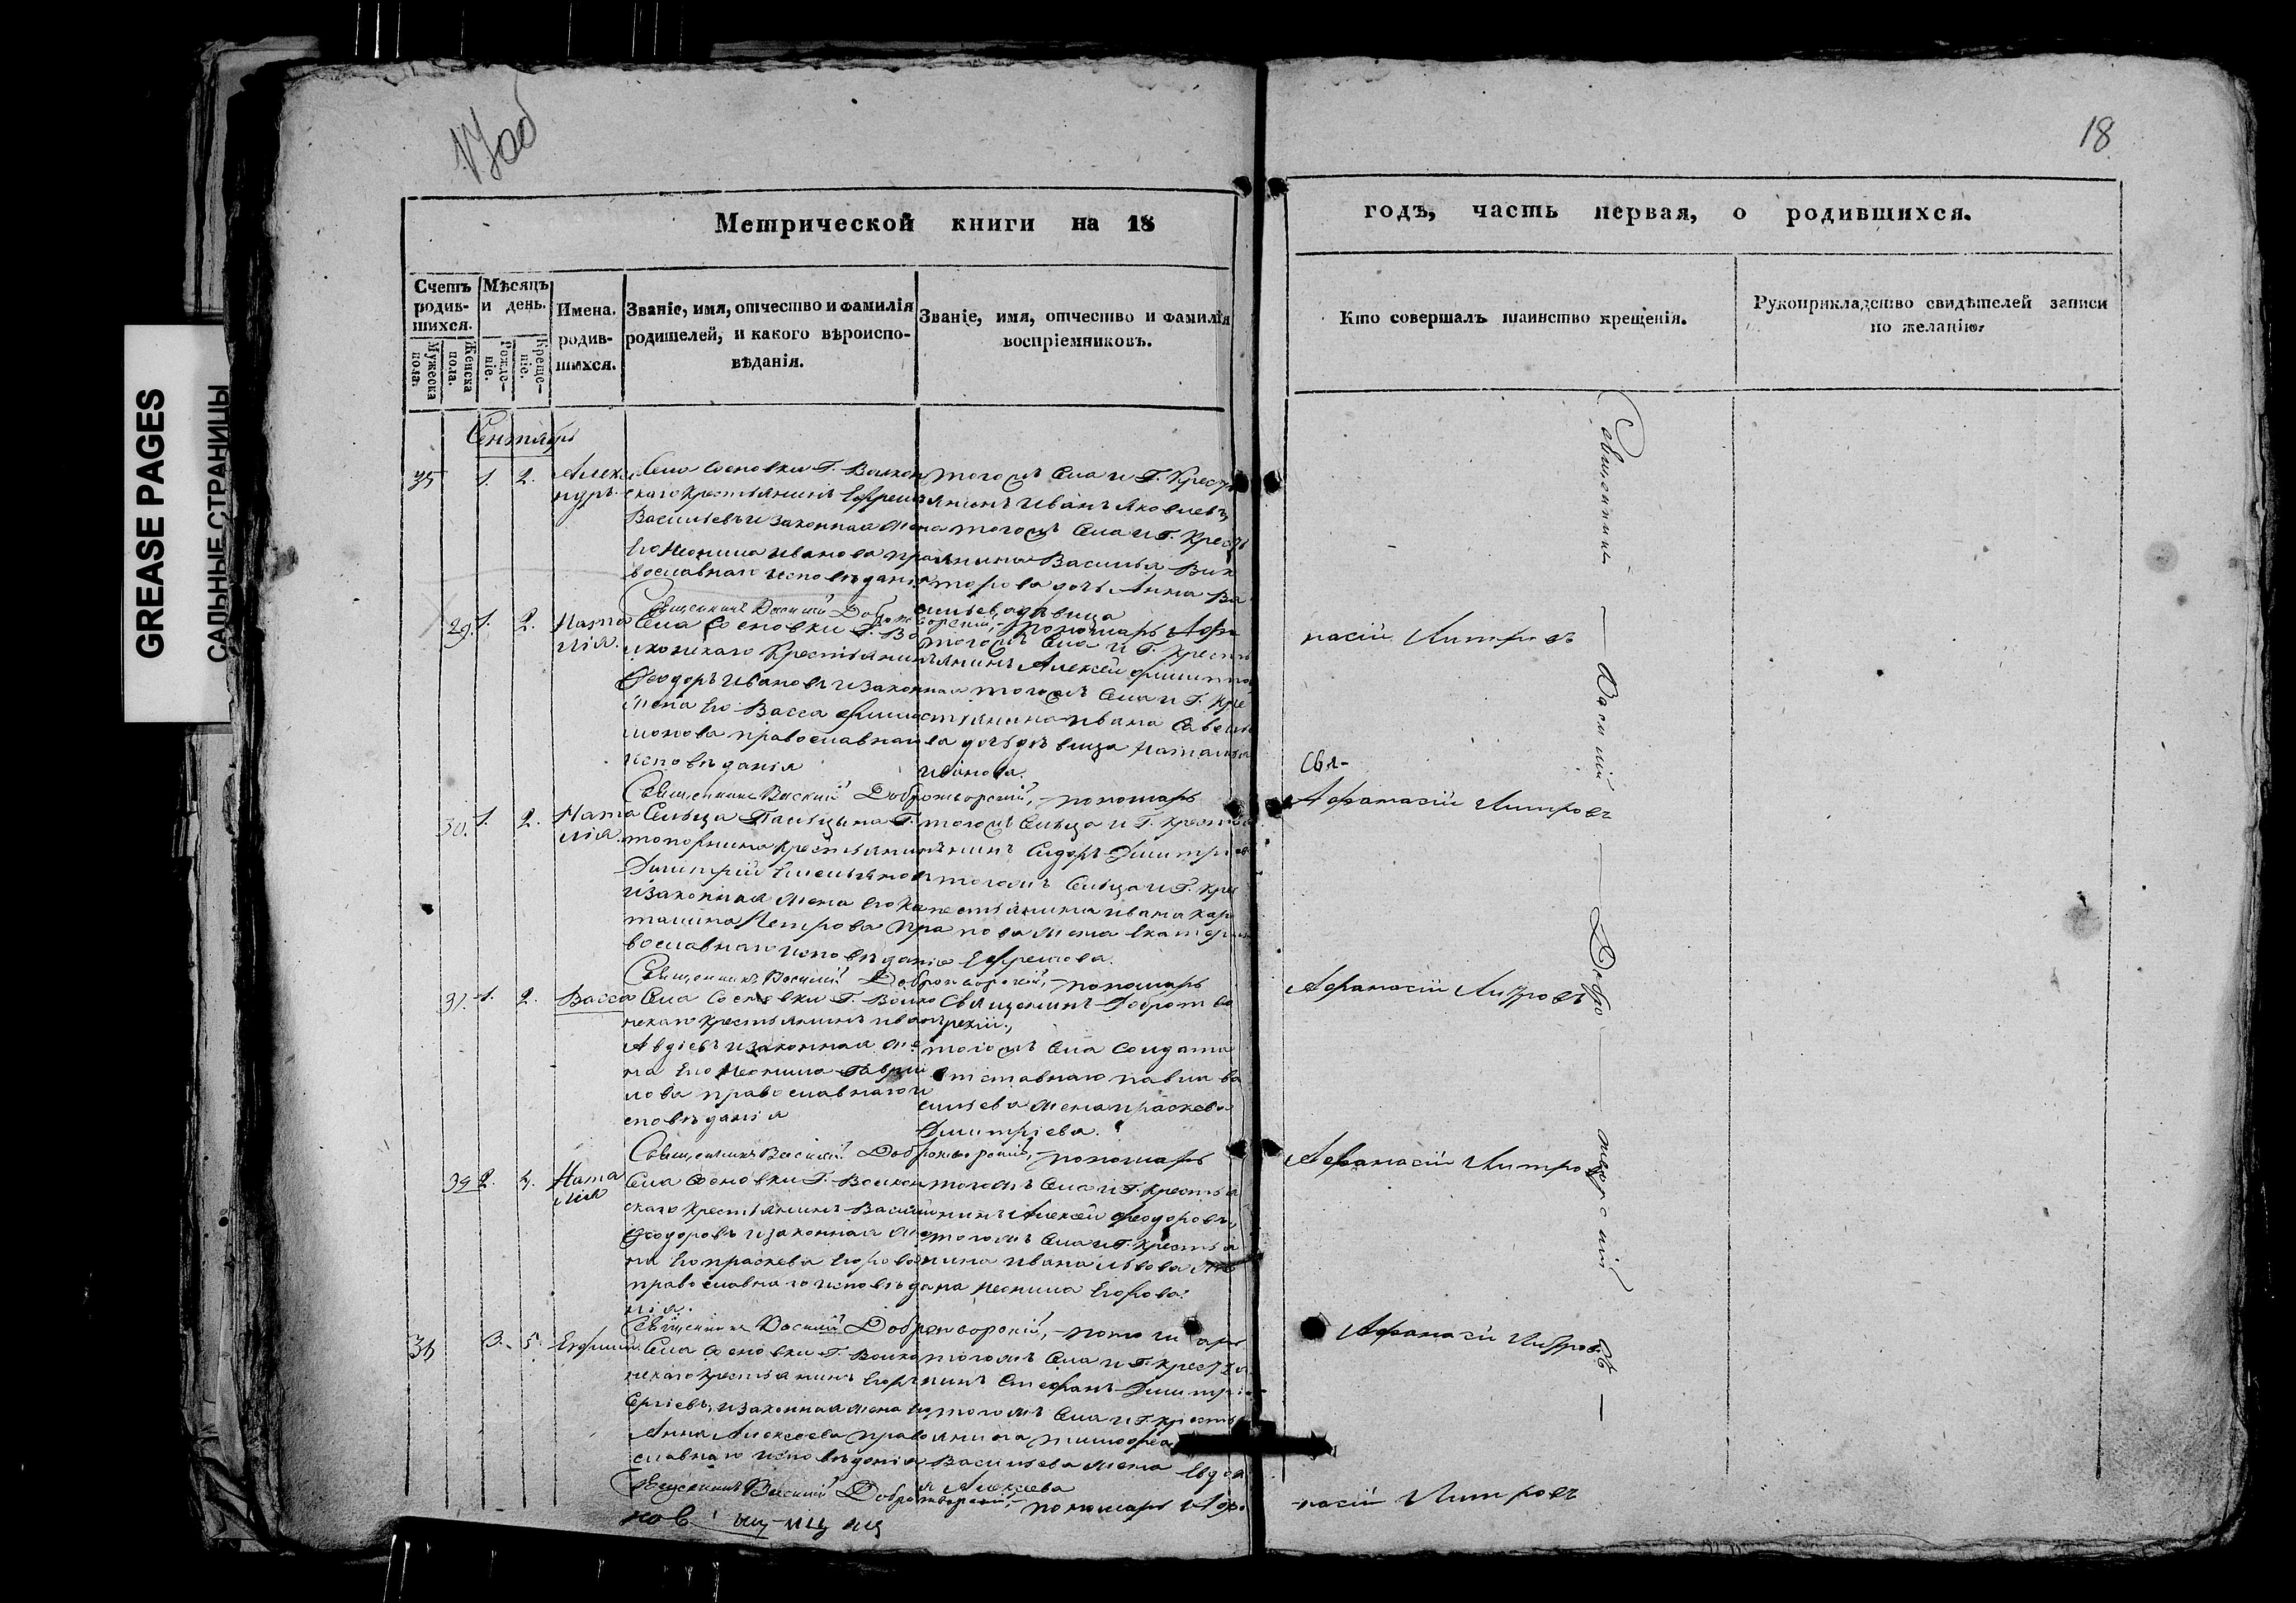 GREASE PAGES
САЛЬНЫЕ СТРАНИЦЫ
17 об
18
Метрической книги на 18
годъ, часть первая, о родившихся.
Счетъ родив-шихся.
Мужеска пола.
Женска пола.
Мѣсяцъ и день.
Рожде-ніе.
Креще-ніе.
Имена родив-шихся.
Званіе, имя, отчество и фамилія
родителей, и какого вѣроиспо-
вѣданія.
Званіе, имя, отчество и фамилія
воспріемниковъ.
Кто совершалъ таинство крещенія.
Рукоприкладство свидѣтелей записи
по желанію.
Сентябрь
35 1. 2.
Села Сосновки Г. Волкон
скаго крестьянинъ Ефремъ
Васильевъ и законная жена
его Неонила Иванова пра
вославнаго исповѣданія
тогожъ села и Г. Кресть
янинъ Иванъ Яковлевъ,
тогожъ села и Г. Кресть
янина Василья Вик
торова дочь Анна Ва
сильева девица
Священникъ Василий Доброт ворский, пономарь Афа
насій Митровъ
29. 1. 2. Ната
лія.
Села Сосновки Г. Во
лконскаго Крестьянинъ
Феодоръ Ивановъ и законная
жена его Васса Фили
монова православнаго
исповѣданія
тогожъ села и Г. Кресть
янинъ Алексей Филиппо
тогожъ села и Г. Кре
стьянина Ивана Савель
ва дочь девица Наталья
Иванова.
Священникъ Василий Добротворский, пономарь
Афанасій Митровъ
30. 1. 2. Ната
лія.
Сельца Пальцына Г.
топорнина крестьянинъ
Димитрій Емельяновъ
и законная жена его Ка
Петрова пра
вославнаго исповѣданія
тогожъ сельца и Г. Кресть
янинъ Сидоръ Димитріев
тогожъ сельца и Г. Кре
стьянина Ивана Кар
пова жена Екатерин
Ефремова.
Священникъ Василий Добротворский, пономарь
Афанасій Митровъ
31. 1. 2. Васса
Села Сосновки Г. Волко
нскаго крестьянинъ Иванъ
Авдіевъ и законная же
на его Неонила Гаври
лова православнаго и
споведанія
Священникъ Добротво
рскій,
тогожъ села солдата
отставнаго Павла Ва
сильева жена Праскева
Димитріева.
Священникъ Василий Добротворский, пономарь
Афанасій Митровъ
32 2. 4. Ната
лія
Села Сосновки Г. Волкон
скаго крестьянинъ Василій
Феодоровъ и законная же
на его Праскева Егорова
православнаго исповѣда
нія.
тогожъ села и Г. крестья
нинъ Алексей Феодоровъ,
тогожъ села и Г. Крестья
нина Ивана Львова же
на Неонила Егорова.
Священникъ Василий Добротворский, пономарь
Афанасій Митровъ
36 3. 5. Ефимій.
Села Сосновки Г. Волко
нскаго крестьянинъ Егоръ
Сергіевъ, и законная жена его
Анна Алексеева право
славнаго исповѣданія
тогожъ села и Г. крестья
нинъ Стефанъ Димитріе
тогожъ села и Г. крестья
янина Тимофея
Васильева жена Евдок
я Алексеева
Священникъ Василий Добротворский, пономарь Афа
насій Митровъ
Священникъ Василій Добротворскій